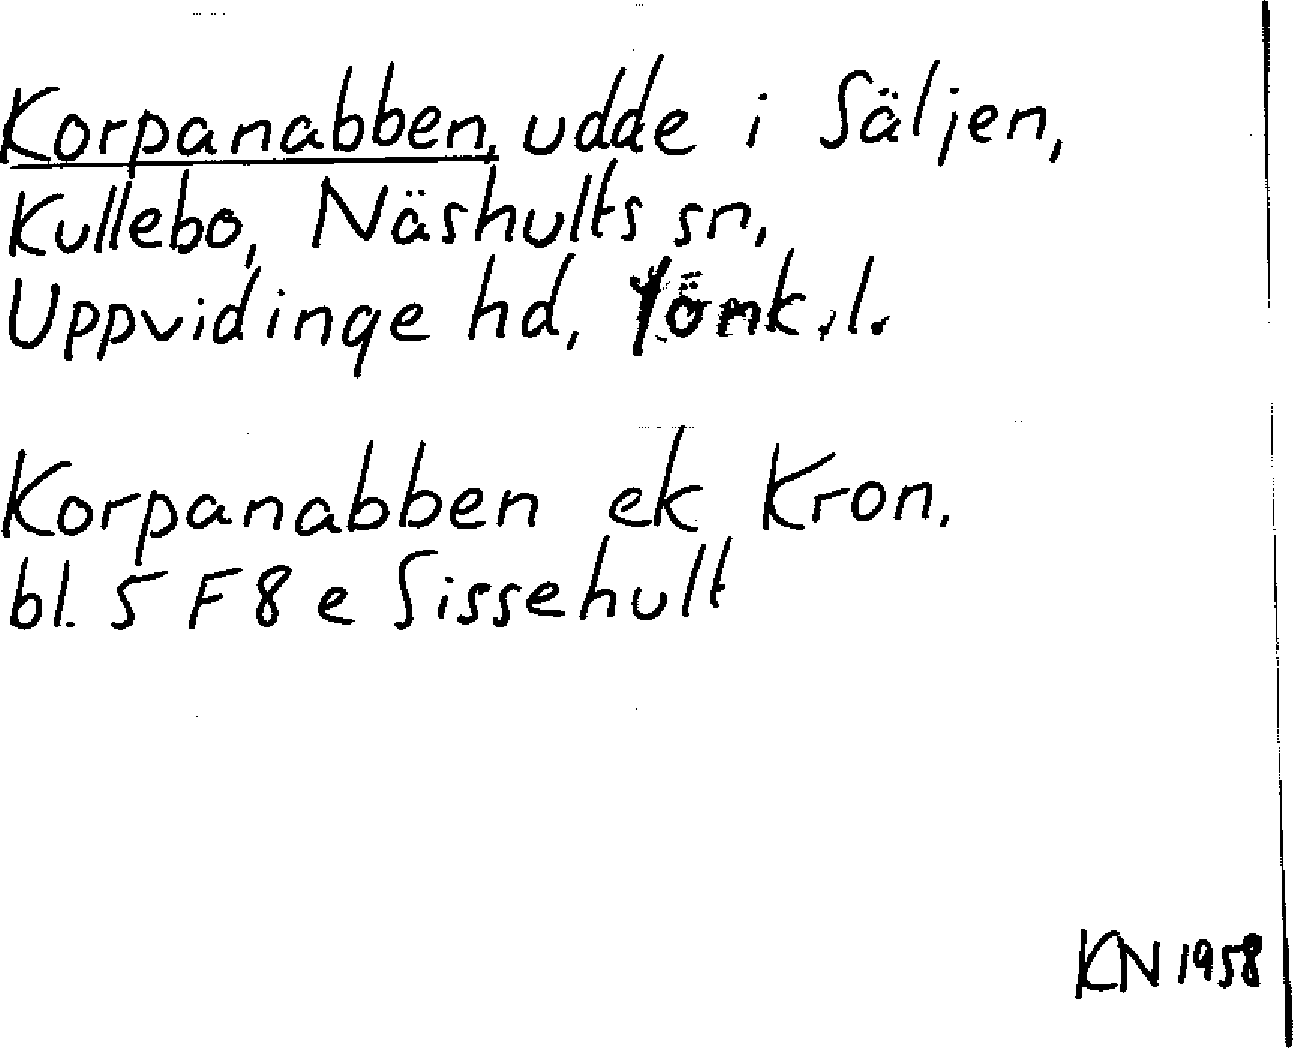 Korpanabben, udde i Säljen,
Kullebo, Näshults sn,
Uppvidinge hd, Jönk.l.
Korpanabben ek Kron.
bl. 5 F 8 e Sissehult
KN 1958